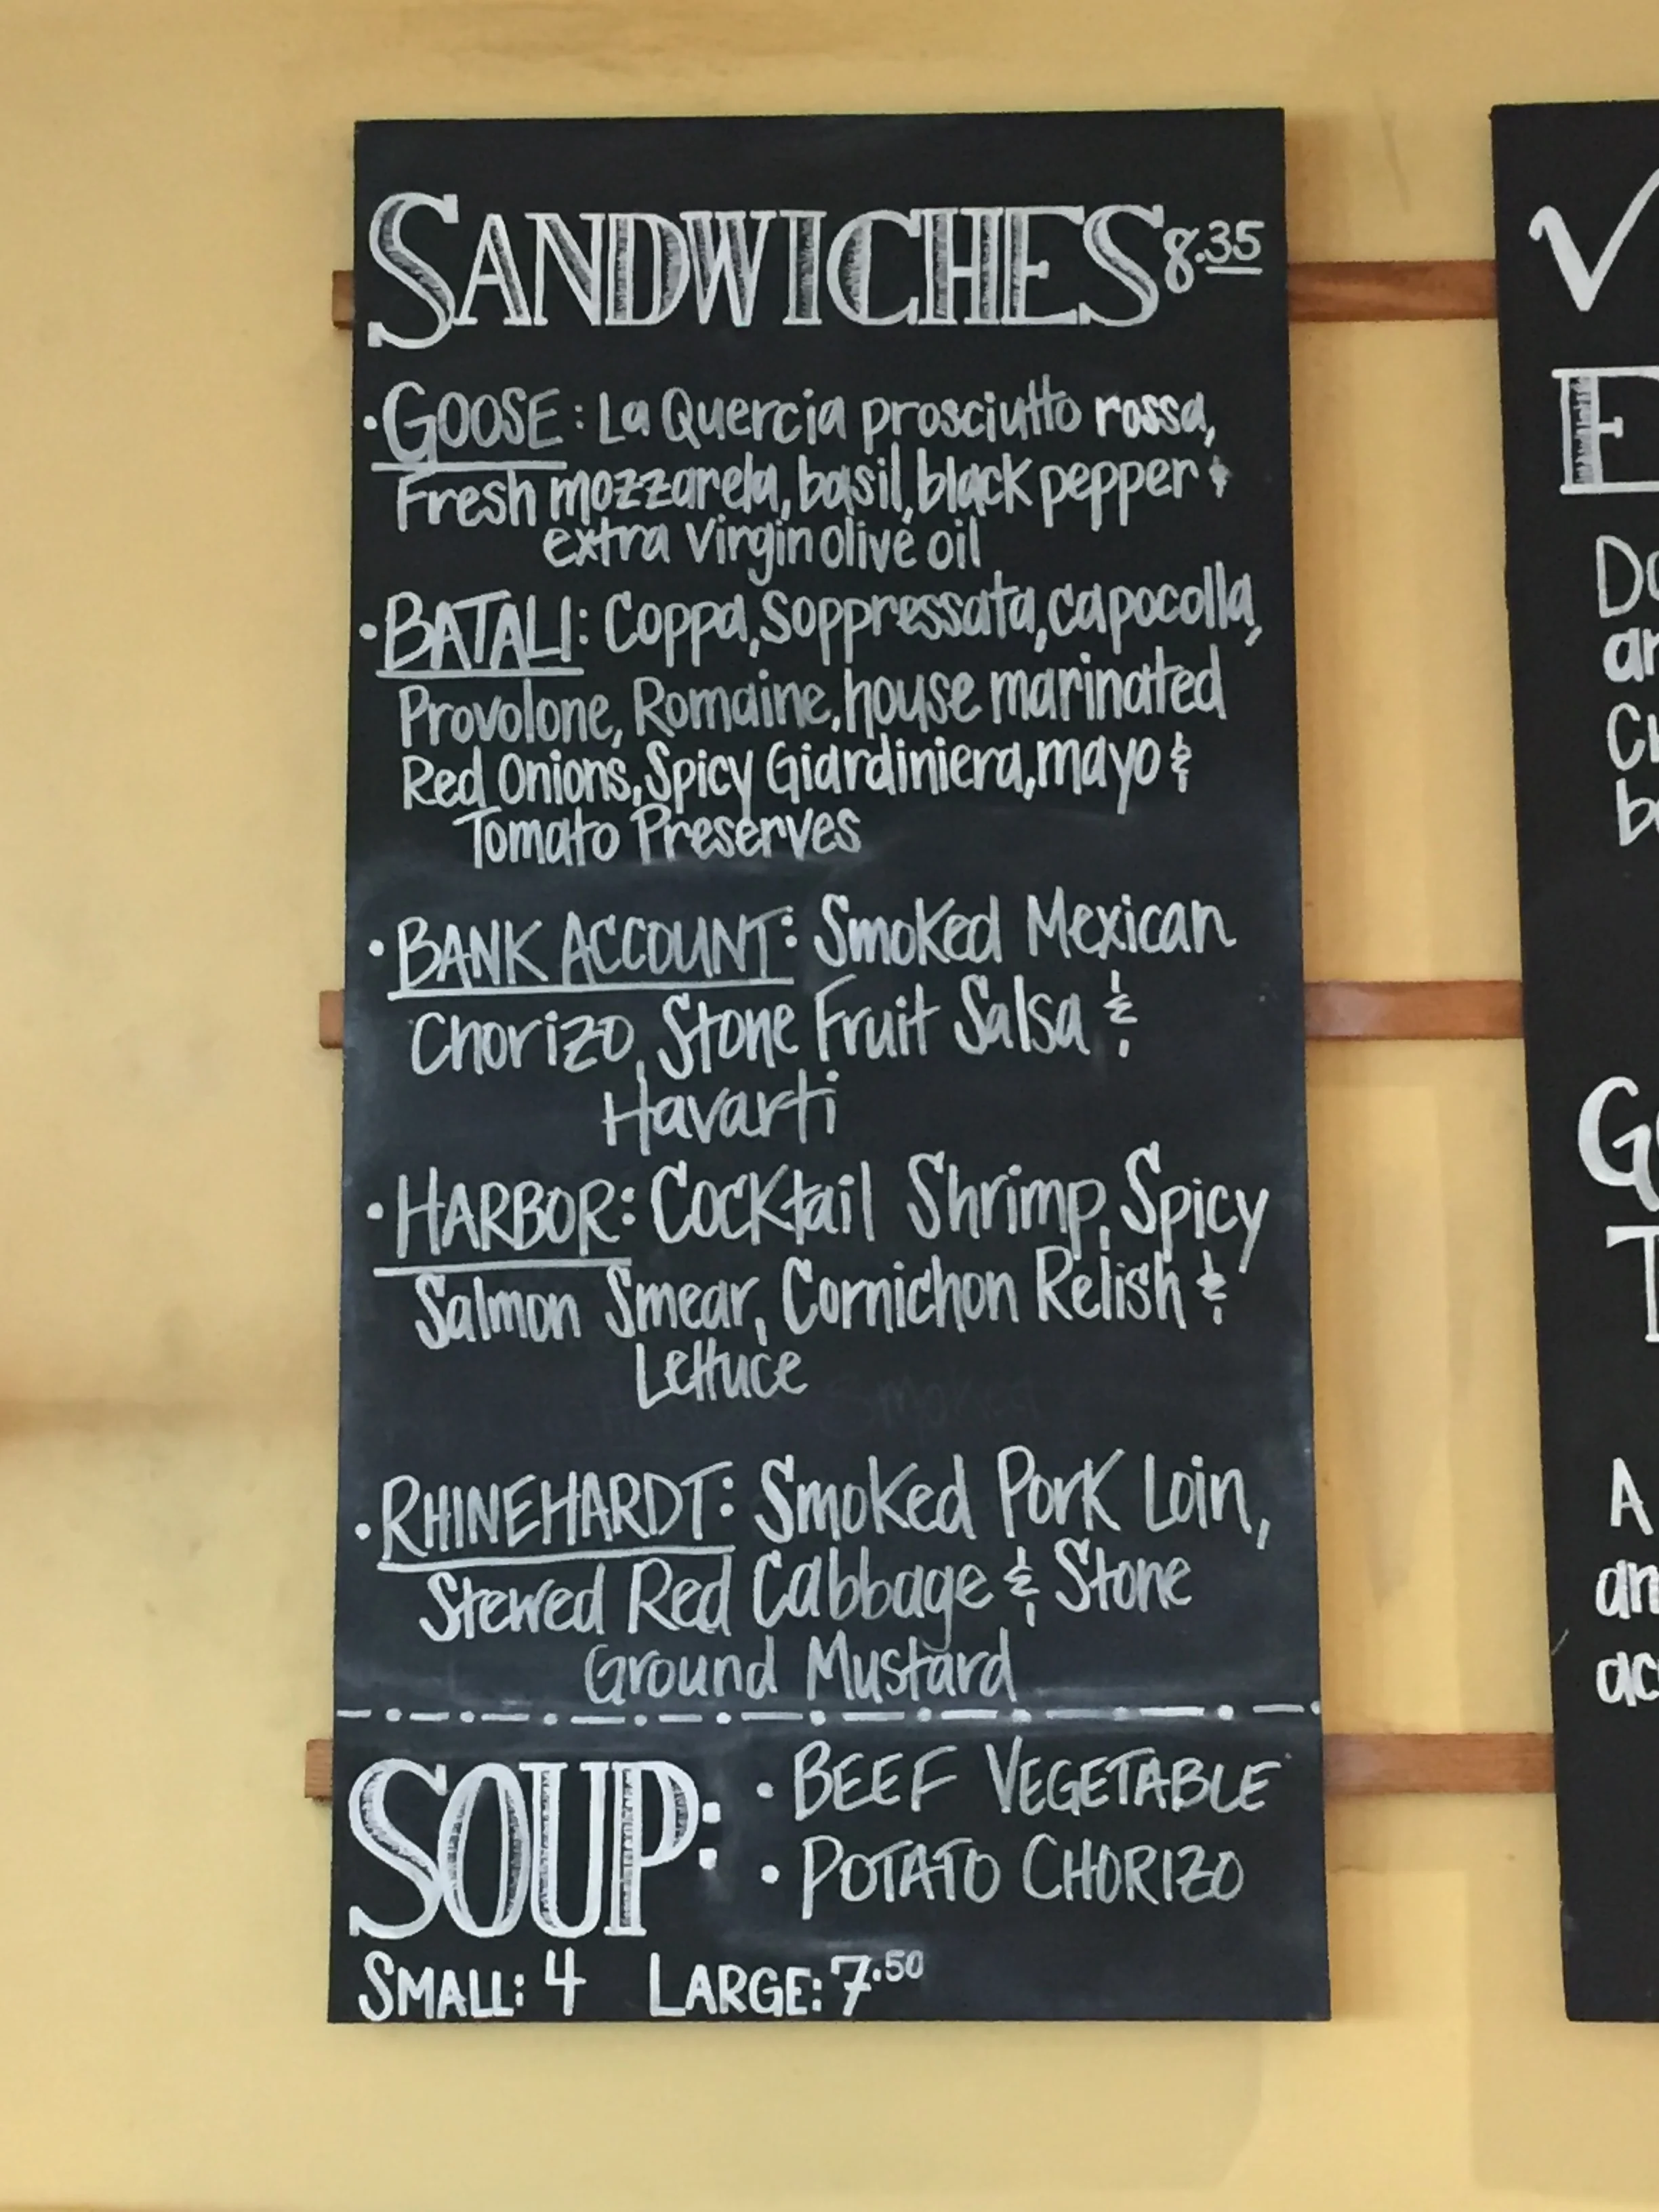 SANDWICHES 8.35
• GOOSE: La Quercia prosciutto rossa,
Fresh mozzarela, basil, black pepper &
extra Virgin olive oil
• BATALI: Coppa, Soppressata, capocolla,
Provolone, Romaine, house marinated
Red Onions, Spicy Giardiniera, mayo &
Tomato Preserves
• BANK ACCOUNT: Smoked Mexican
Chorizo, Stone Fruit Salsa &
Havarti
• HARBOR: Cocktail Shrimp, Spicy
Salmon Smear, Cornichon Relish &
Lettuce
• RHINEHARDT: Smoked Pork Loin,
Stewed Red Cabbage & Stone
Ground Mustard
SOUP: • BEEF VEGETABLE
• POTATO CHORIZO
SMALL: 4 LARGE: 7.50